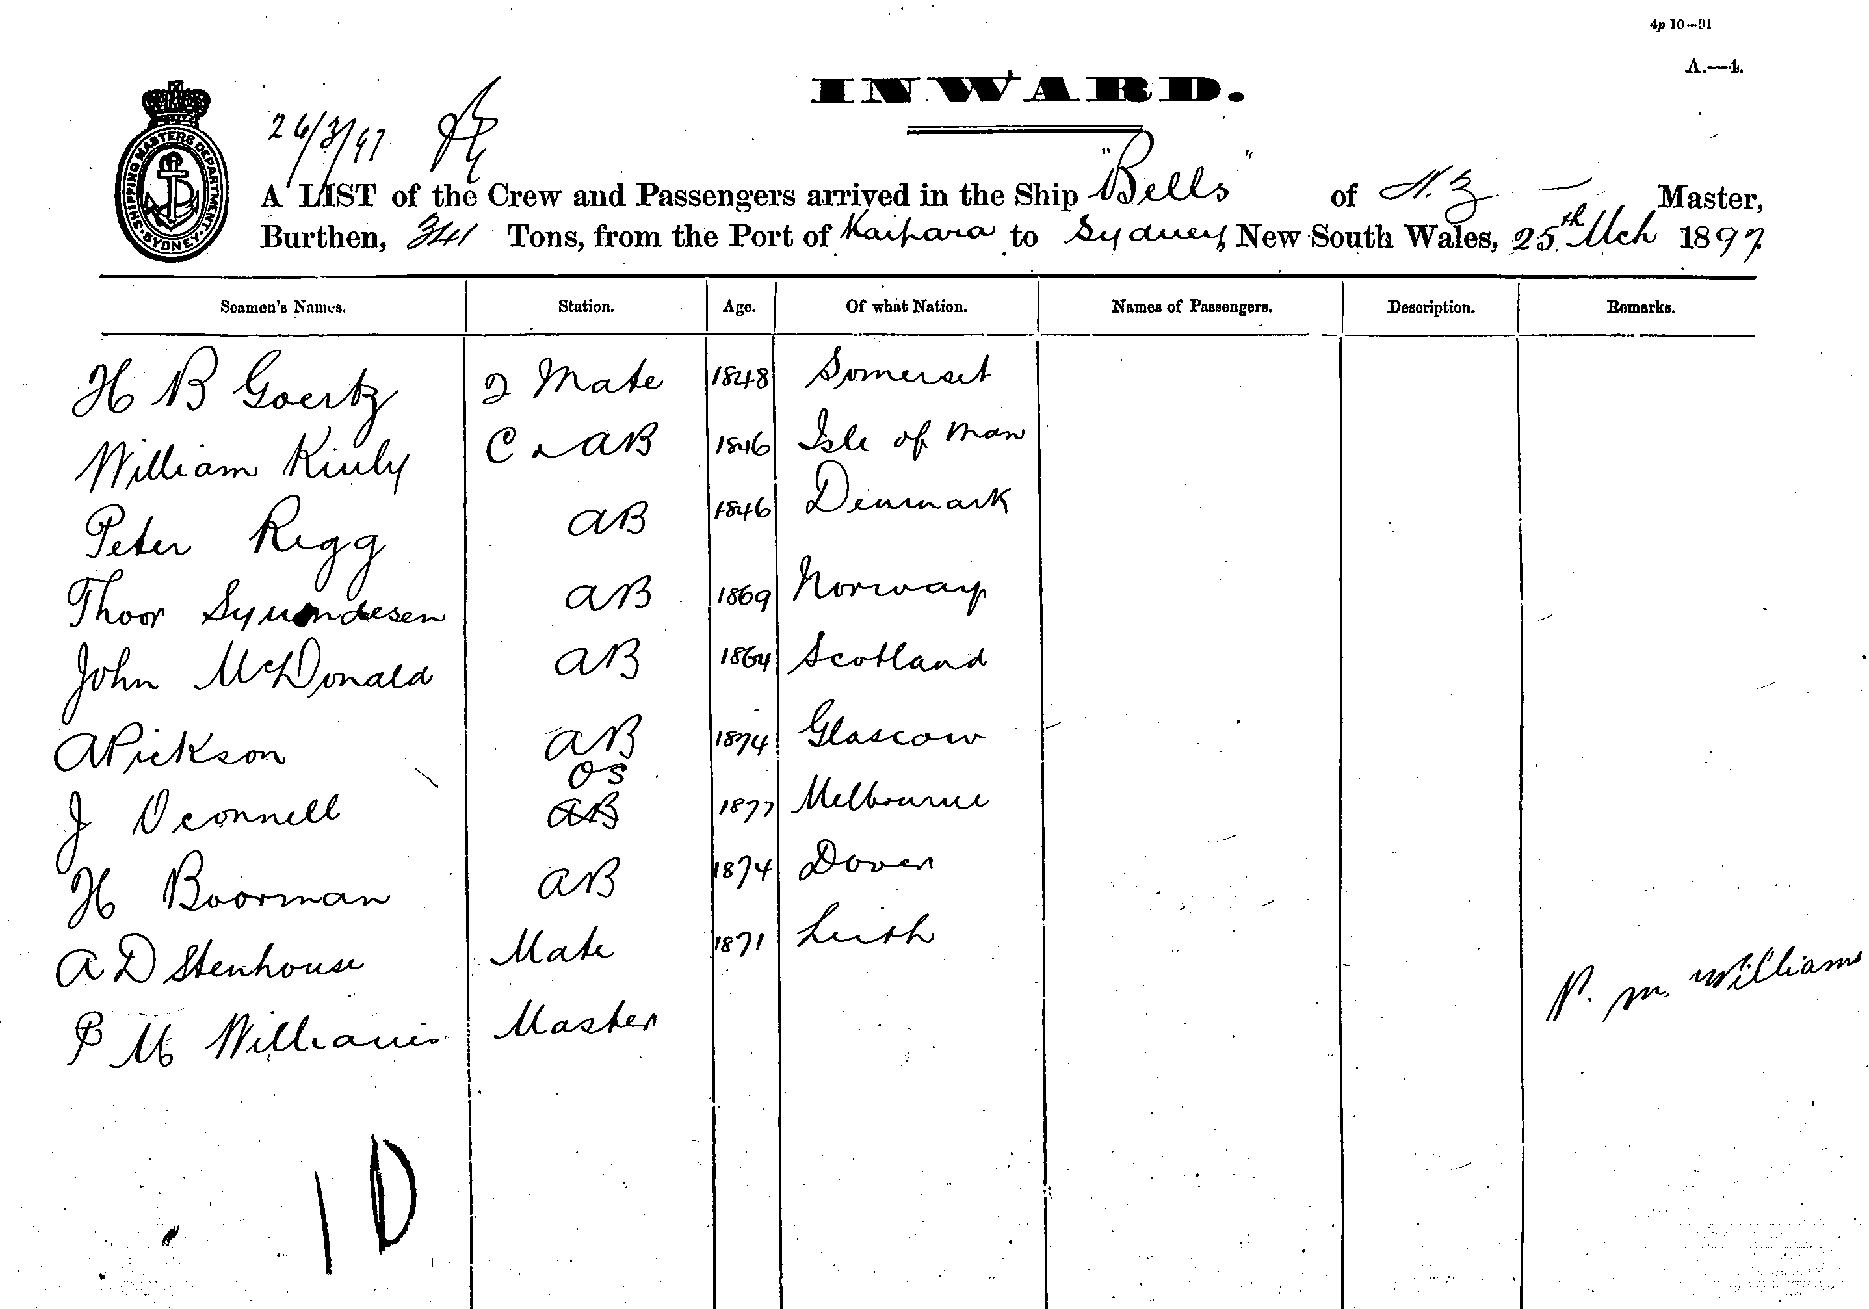 4p 10—91
A.—4.
INWARD.
26/3/97
SHIPPING MASTERS DEPARTMENT · SYDNEY ·
A LIST of the Crew and Passengers arrived in the Ship "Bells" of N.Z — Master,
Burthen, 341 Tons, from the Port of Kaipara to Sydney, New South Wales, 25th Mch 1897
Seamen's Names. Station. Age. Of what Nation. Names of Passengers. Description. Remarks.
H B Goertz 2 Mate 1848 Somerset
William Kinly C & AB 1846 Isle of Man
Peter Rigg AB 1846 Denmark
Thoor AB 1869 Norway
John McDonald AB 1864 Scotland
A Pickson AB 1874 Glascow
OS
J Oconnell AB 1877 Melbourne
H Boorman AB 1874 Dover
A D Stenhouse Mate 1871 Leith
P M Williams Master
P. M. Williams
1D